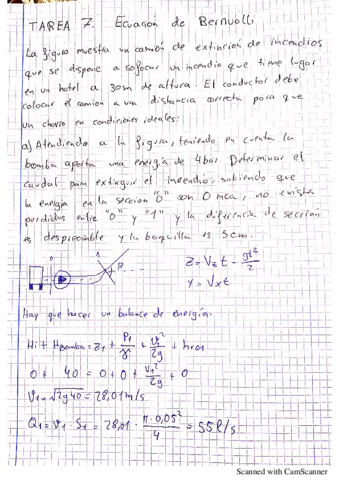 TAREA 7. Ecuacion de Bernuolli
La figura muestra un camión de extinción de incendios
que se dispone a sofocar un incendio que tiene lugar
en un hotel a 30m de altura. El conductor debe
colocar el camion a una distancia correcta para que
un chorro en condiciones ideales:
a) Atendiendo a la figura, teniendo en cuenta la
bomba aporta una energía de 4bar. Determinar el
caudal para extinguir el incendio, sabiendo que
la energía en la sección "0" son 0 mca, no existe
perdidas entre "0" y "1" y la diferencia de sección
es despreciable y la boquilla es 5cm.
0
1
Z = Vz t - gt²/2
Y = Vx t
Hay que hacer un balance de energía.
Hi + HBomba = z1 + P1/γ + V1²/2g + h
0 + 40 = 0 + 0 + V1²/2g + 0
V1 = √2g40 = 28,01 m/s
Q1 = V1 · S1 = 28,01 · π·0,05²/4 = 55 l/s
Scanned with CamScanner